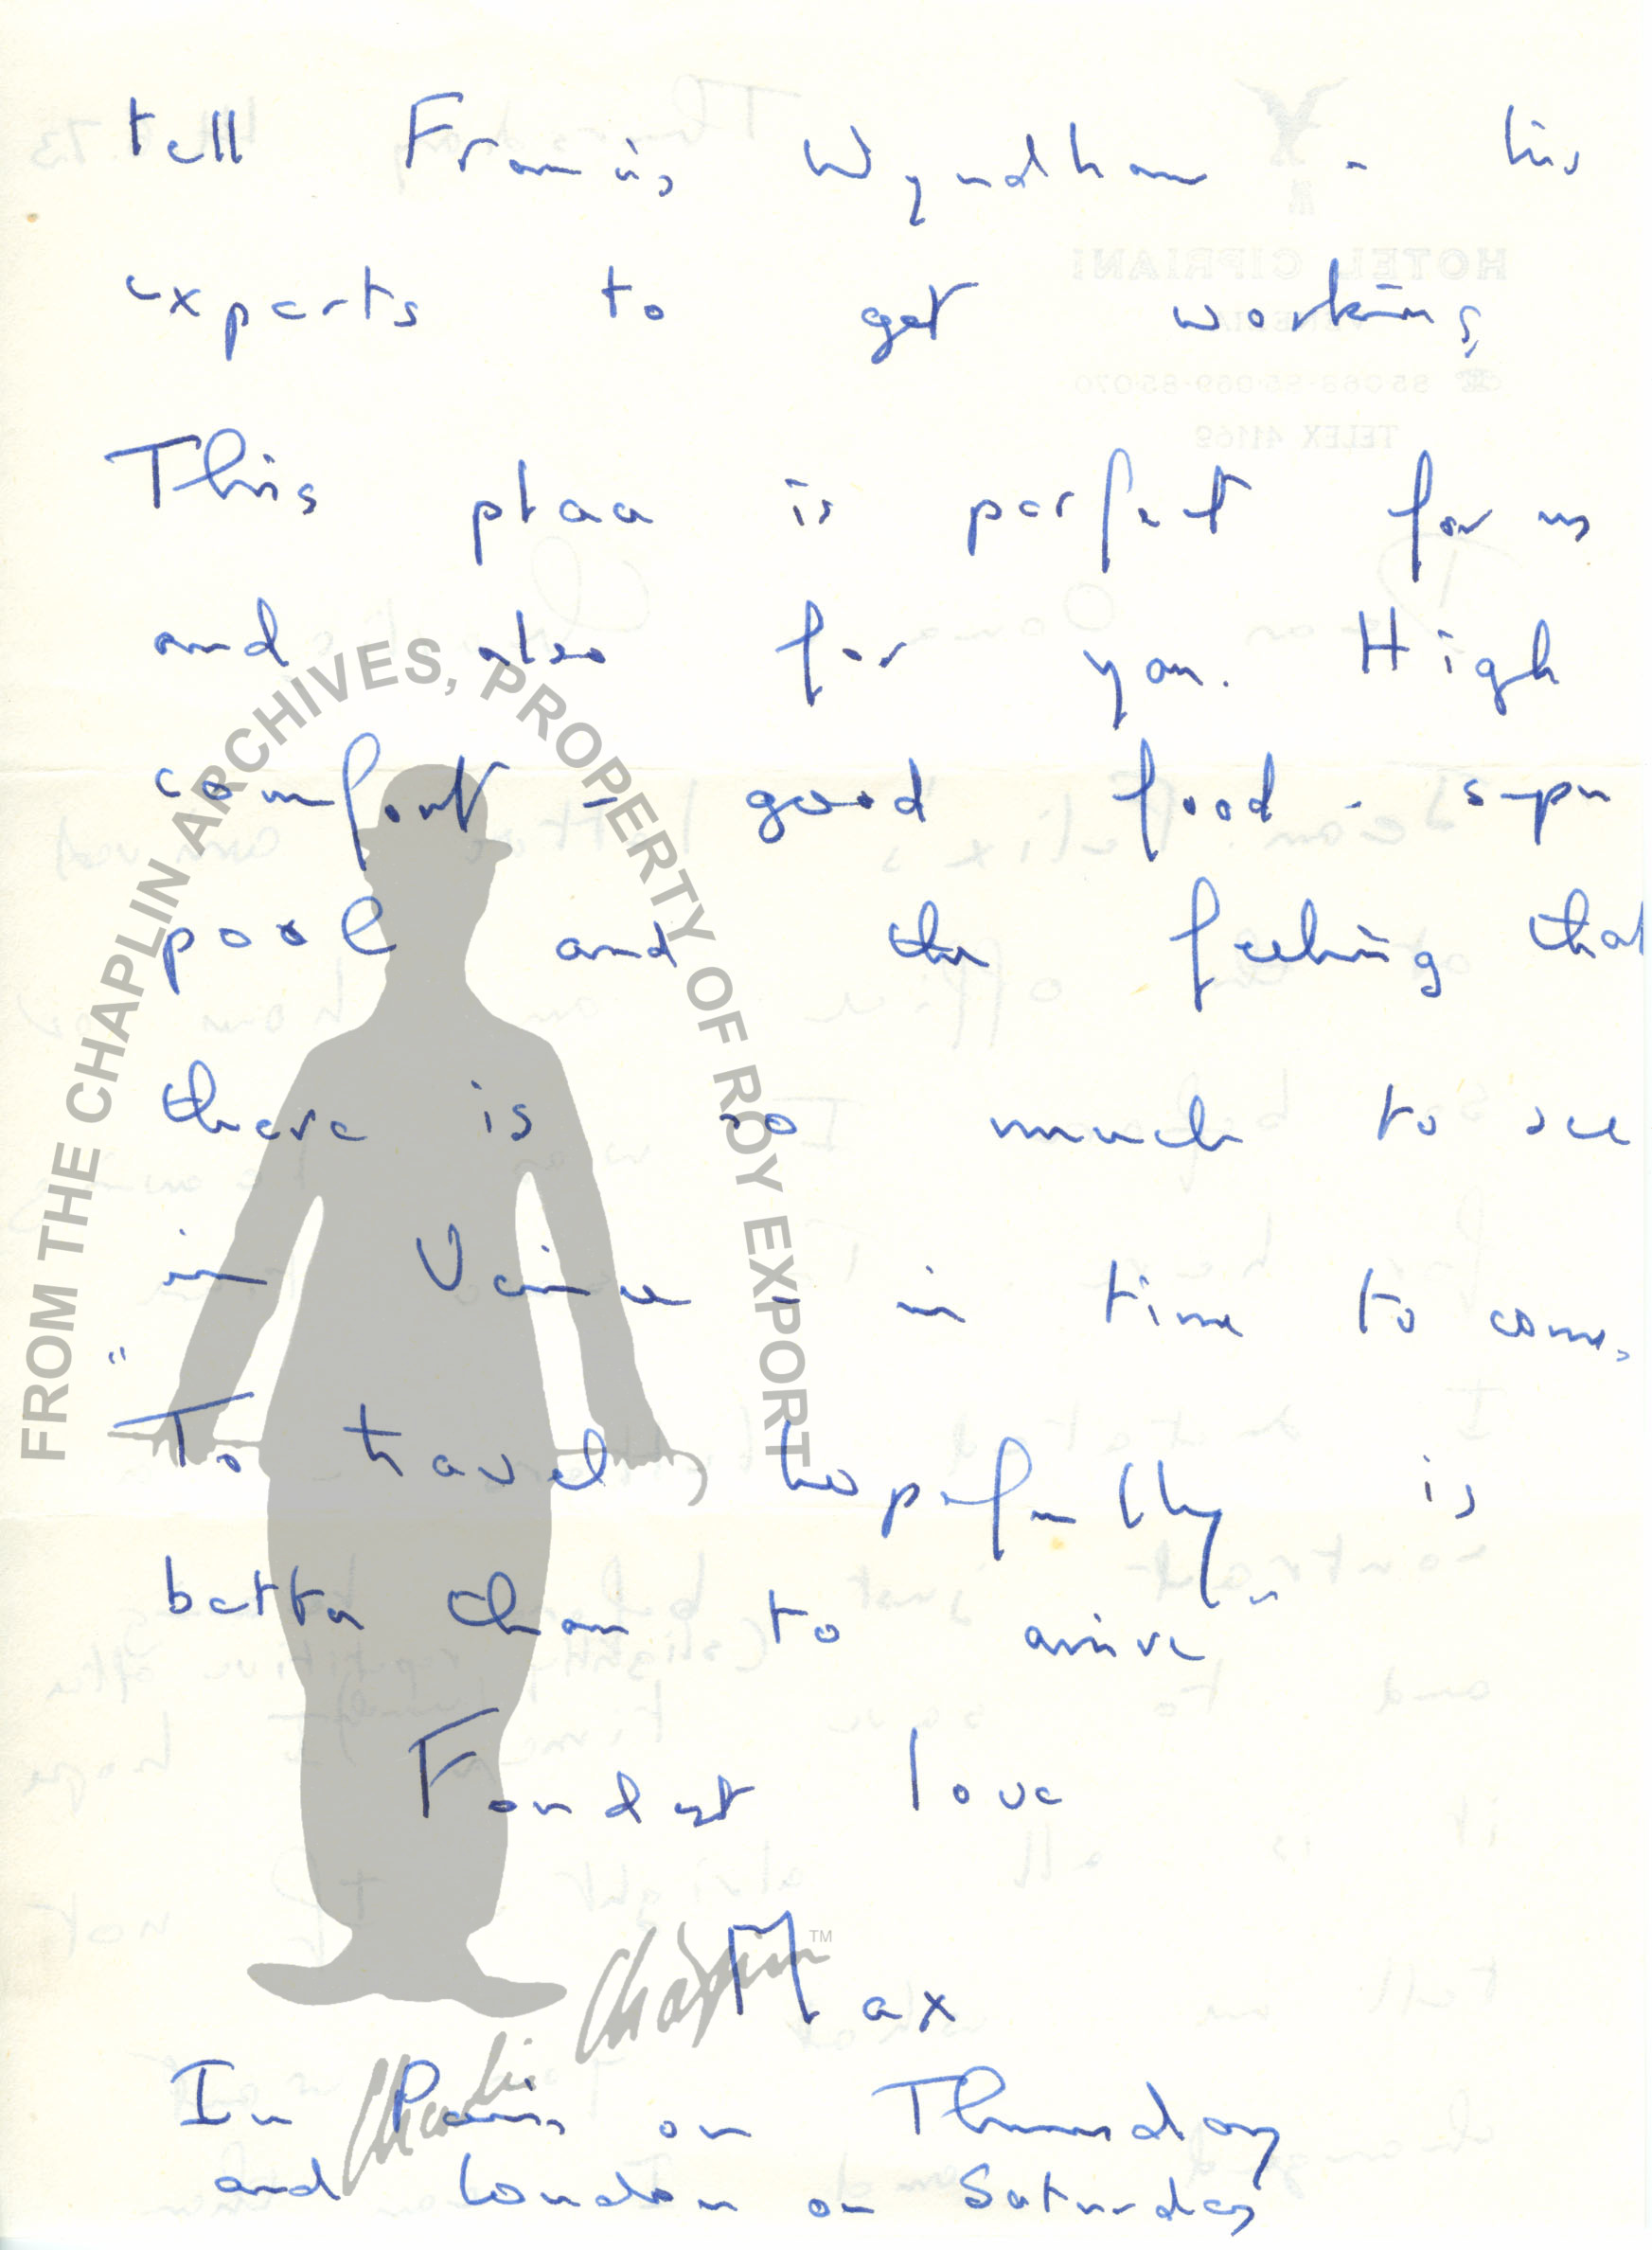 tell Francis Wyndham - his
experts to get working
This place is perfect for us
and also for you. High
comfort - good food - super
pool and the feeling that
there is so much to see
in Venice - in time to come.
"To travel hopefully is
better than to arrive"
Fondest love
Max
In Paris on Thursday
and London on Saturday
FROM THE CHAPLIN ARCHIVES, PROPERTY OF ROY EXPORT
Charlie Chaplin™
HOTEL CIPRIANI
TELEX 41169